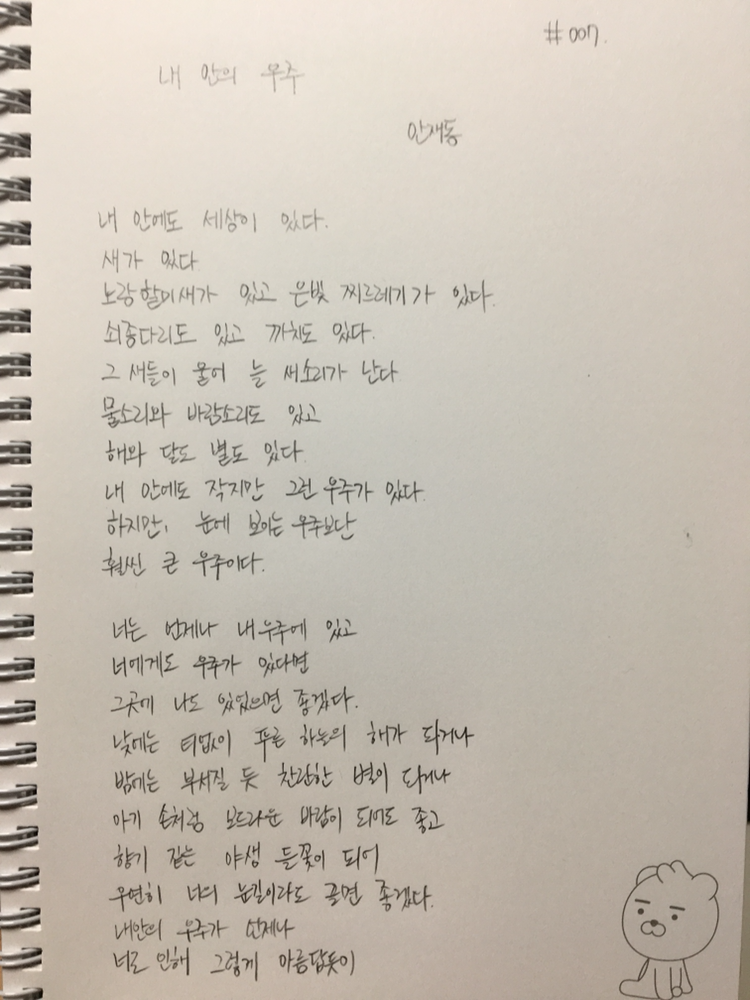 #007.
내 안의 우주
안재동
내 안에도 세상이 있다.
새가 있다
노랑할미새가 있고 은빛 찌르레기가 있다.
쇠종다리도 있고 까치도 있다.
그 새들이 울어 늘 새소리가 난다
물소리와 바람소리도 있고
해와 달도 별도 있다.
내 안에도 작지만 그런 우주가 있다.
하지만, 눈에 보이는 우주보단
훨씬 큰 우주이다.
너는 언제나 내 우주에 있고
너에게도 우주가 있다면
그곳에 나도 있었으면 좋겠다.
낮에는 티없이 푸른 하늘의 해가 되거나
밤에는 부서질 듯 찬란한 별이 되거나
아기 손처럼 보드라운 바람이 되어도 좋고
향기 짙은 야생 들꽃이 되어
우연히 너의 눈길이라도 끌면 좋겠다.
내안의 우주가 언제나
너로 인해 그렇게 아름답듯이